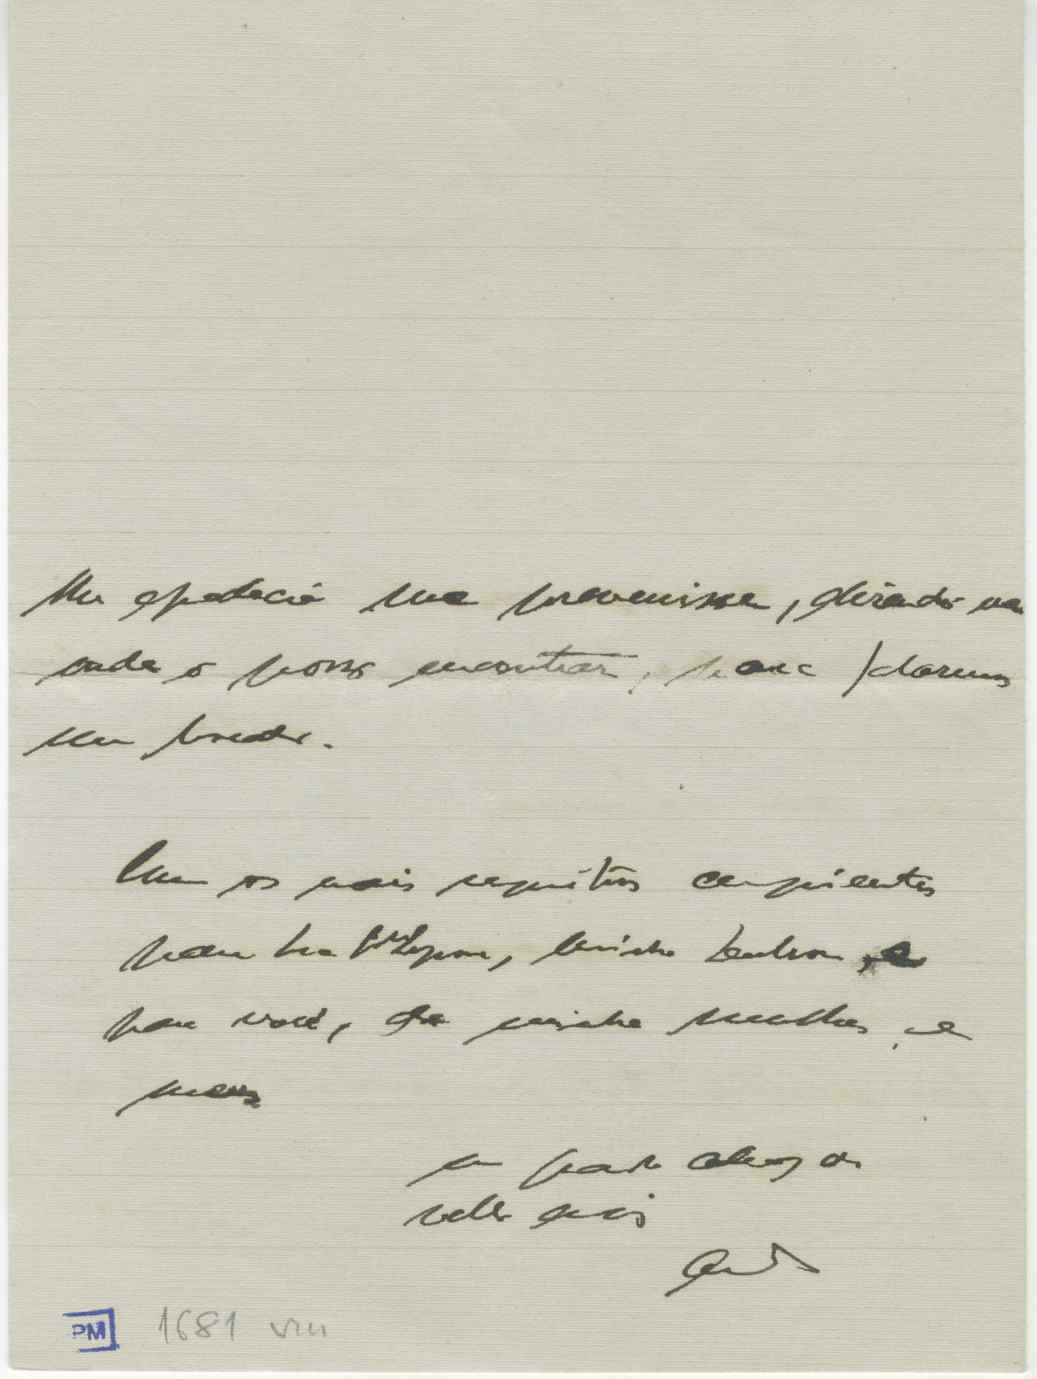 Eu agradecia me prevenisse, dizendo-me
onde o posso encontrar, para darmos
um
Com os mais respeitosos cumprimentos
para sua minha Senhora, e
para você, da minha mulher, e
meus
um grande abraço do
velho amigo
PM 1681 VIII